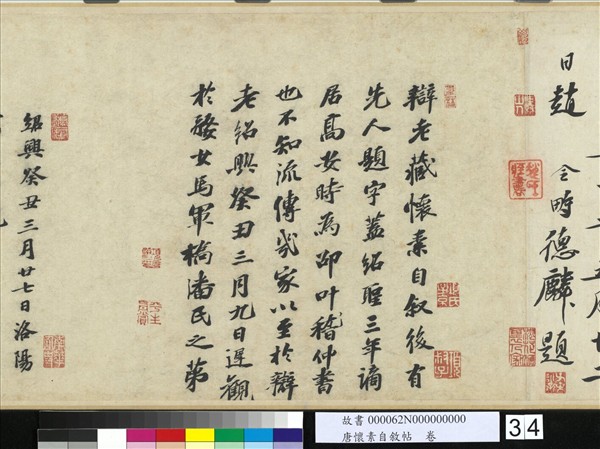 日趙令畤德麟題
辯老藏懷素自叙後有
先人題字蓋紹聖三年謫
居高安時為邵叶稽仲書
也不知流傳幾家以至於辯
老紹興癸丑三月九日遲觀
於婺女馬軍橋潘氏之第
紹興癸丑三月廿七日洛陽
故書 000062N000000000
唐懷素自敘帖 卷
34